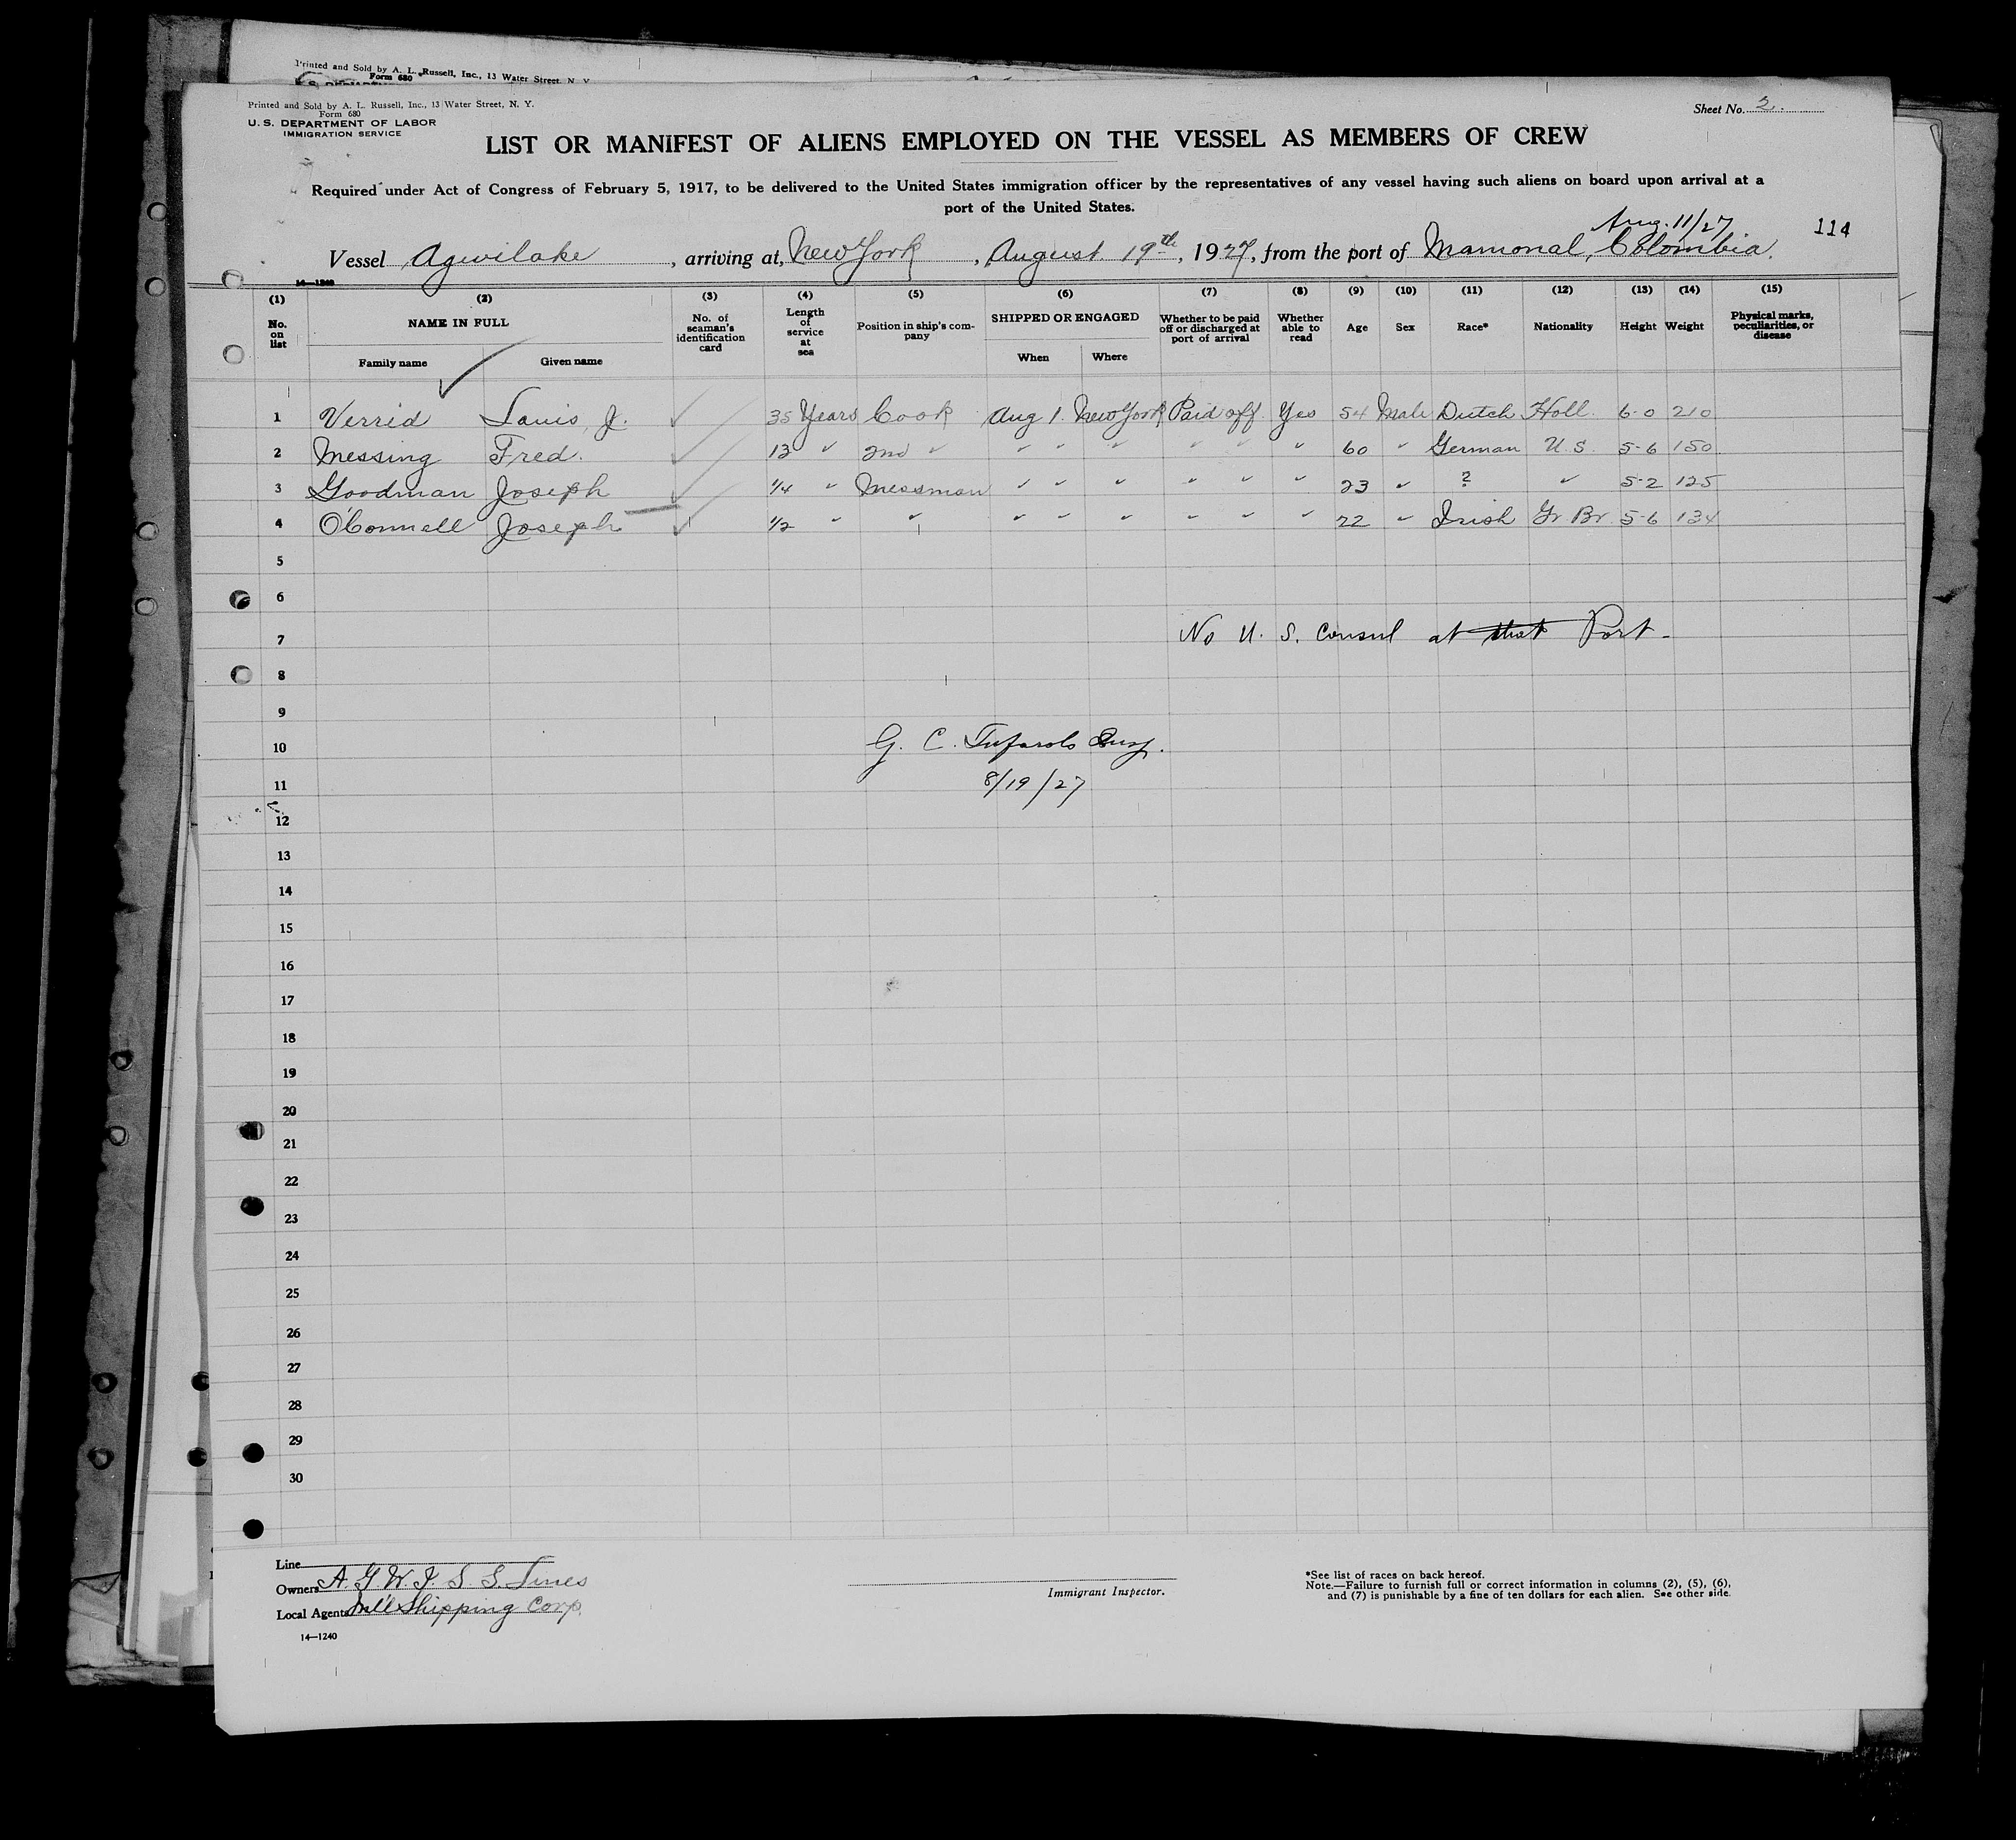 Printed and Sold by A. L. Russell, Inc., 13 Water Street, N. Y.
Form 680
Printed and Sold by A. L. Russell, Inc., 13 Water Street, N. Y.
Form 680
U. S. DEPARTMENT OF LABOR
IMMIGRATION SERVICE
Sheet No. 2.
LIST OR MANIFEST OF ALIENS EMPLOYED ON THE VESSEL AS MEMBERS OF CREW
Required under Act of Congress of February 5, 1917, to be delivered to the United States immigration officer by the representatives of any vessel having such aliens on board upon arrival at a
port of the United States.
Aug. 11/27
114
Vessel Agwilake, arriving at, New York, August 19th, 1927, from the port of Mamonal, Colombia.
14—1240
(1) (2) (3) (4) (5) (6) (7) (8) (9) (10) (11) (12) (13) (14) (15)
No. on list NAME IN FULL Family name Given name No. of seaman's identification card Length of service at sea Position in ship's company SHIPPED OR ENGAGED When Where Whether to be paid off or discharged at port of arrival Whether able to read Age Sex Race* Nationality Height Weight Physical marks, peculiarities, or disease
1 Verrid Louis, J. 35 Years Cook Aug 1. New York Paid off Yes 54 Male Dutch Holl. 6-0 210
2 Messing Fred. 13 " 2nd " " " " " " " 60 " German U. S. 5-6 150
3 Goodman Joseph 1/4 " Messman " " " " " " 23 " ? " 5-2 125
4 O'Connell Joseph 1/2 " " " " " " " " 22 " Irish Gr Br 5-6 134
5
6
7 No U. S. Consul at that Port -
8
9
10 G. C.
11 8/19/27
12
13
14
15
16
17
18
19
20
21
22
23
24
25
26
27
28
29
30
Line
Owners A. G. W. I. S. S. Lines
Local Agents Shipping Corp.
14—1240
Immigrant Inspector.
*See list of races on back hereof.
Note.—Failure to furnish full or correct information in columns (2), (5), (6),
and (7) is punishable by a fine of ten dollars for each alien. See other side.